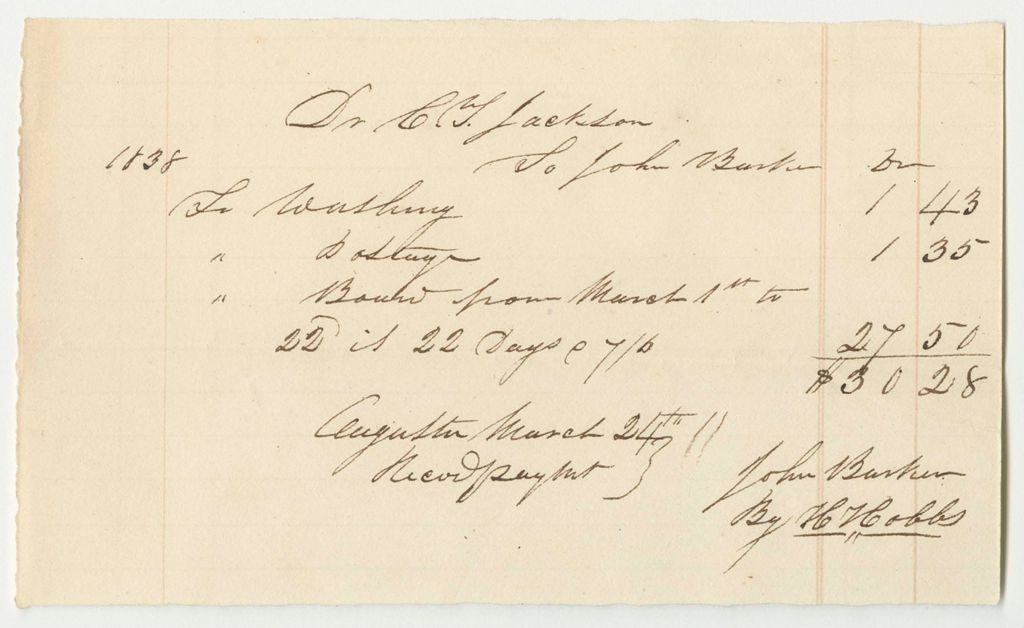 Dr C. T. Jackson
1838 To John Barker Dr
To Washing 1 43
" Postage 1 35
" Board from March 1st to
22d is 22 Days @ 7/6 27 50
$30 28
Augusta March 24th
Recvd paymt
John Barker
By H Hobbs